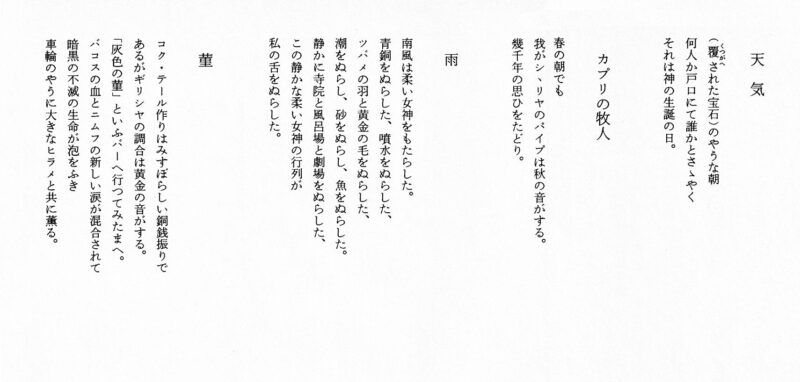 天気
(覆された宝石)のやうな朝
くつがへ
何人か戸口にて誰かとさゝやく
それは神の生誕の日。
カプリの牧人
春の朝でも
我がシヽリヤのパイプは秋の音がする。
幾千年の思ひをたどり。
雨
南風は柔い女神をもたらした。
青銅をぬらした、噴水をぬらした、
ツバメの羽と黄金の毛をぬらした、
潮をぬらし、砂をぬらし、魚をぬらした。
静かに寺院と風呂場と劇場をぬらした、
この静かな柔い女神の行列が
私の舌をぬらした。
菫
コク・テール作りはみすぼらしい銅銭振りで
あるがギリシヤの調合は黄金の音がする。
「灰色の菫」といふバーへ行つてみたまへ。
バコスの血とニムフの新しい涙が混合されて
暗黒の不滅の生命が泡をふき
車輪のやうに大きなヒラメと共に薫る。